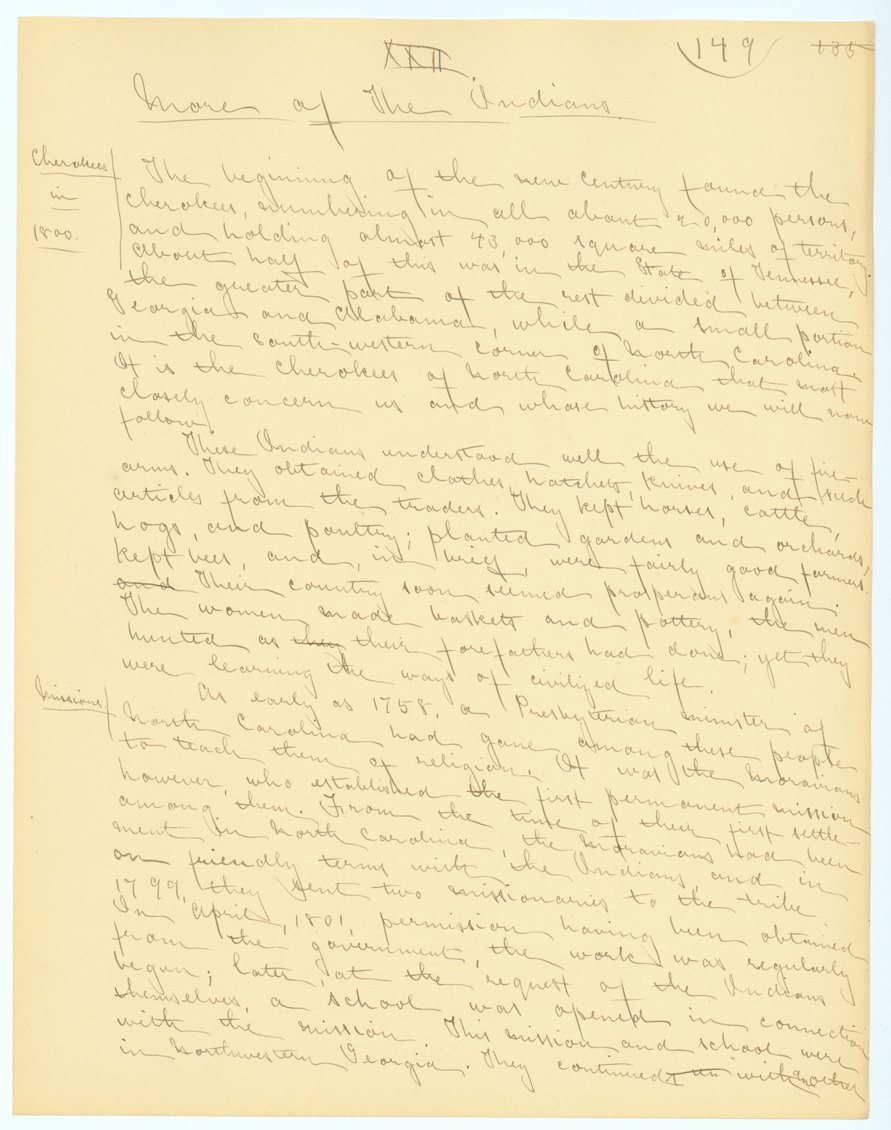 XXII. 149 135
More of The Indians.
Cherokees
in
1800.
The beginning of the new century found the
Cherokees, numbering in all about 20,000 persons,
and holding almost 43,000 square miles of territory.
About half of this was in the State of Tennessee,
the greater part of the rest divided between
Georgia and Alabama, while a small portion
in the south-western corner of North Carolina.
It is the Cherokees of North Carolina that most
closely concern us and whose history we will now
follow.
These Indians understood well the use of fire-
arms. They obtained clothes, hatchets, knives, and such
articles from the traders. They kept horses, cattle,
hogs, and poultry; planted gardens and orchards,
kept bees, and, in brief, were fairly good farmers.
and Their country soon seemed prosperous again.
The women made baskets and pottery, the men
hunted as they their forefathers had done; yet they
were learning the ways of civilized life.
Missions
As early as 1758, a Presbyterian minister of
North Carolina had gone among these people
to teach them of religion. It was the Moravians
however, who established the first permanent mission
among them. From the time of their first settle-
ment in North Carolina, the Moravians had been
on friendly terms with the Indians, and in
1799, they sent two missionaries to the tribe
In April, 1801, permission having been obtained
from the government, the work was regularly
begun; later, at the request of the Indians
themselves, a school was opened in connection
with the mission. This mission and school were
in Northwestern Georgia. They continued with another